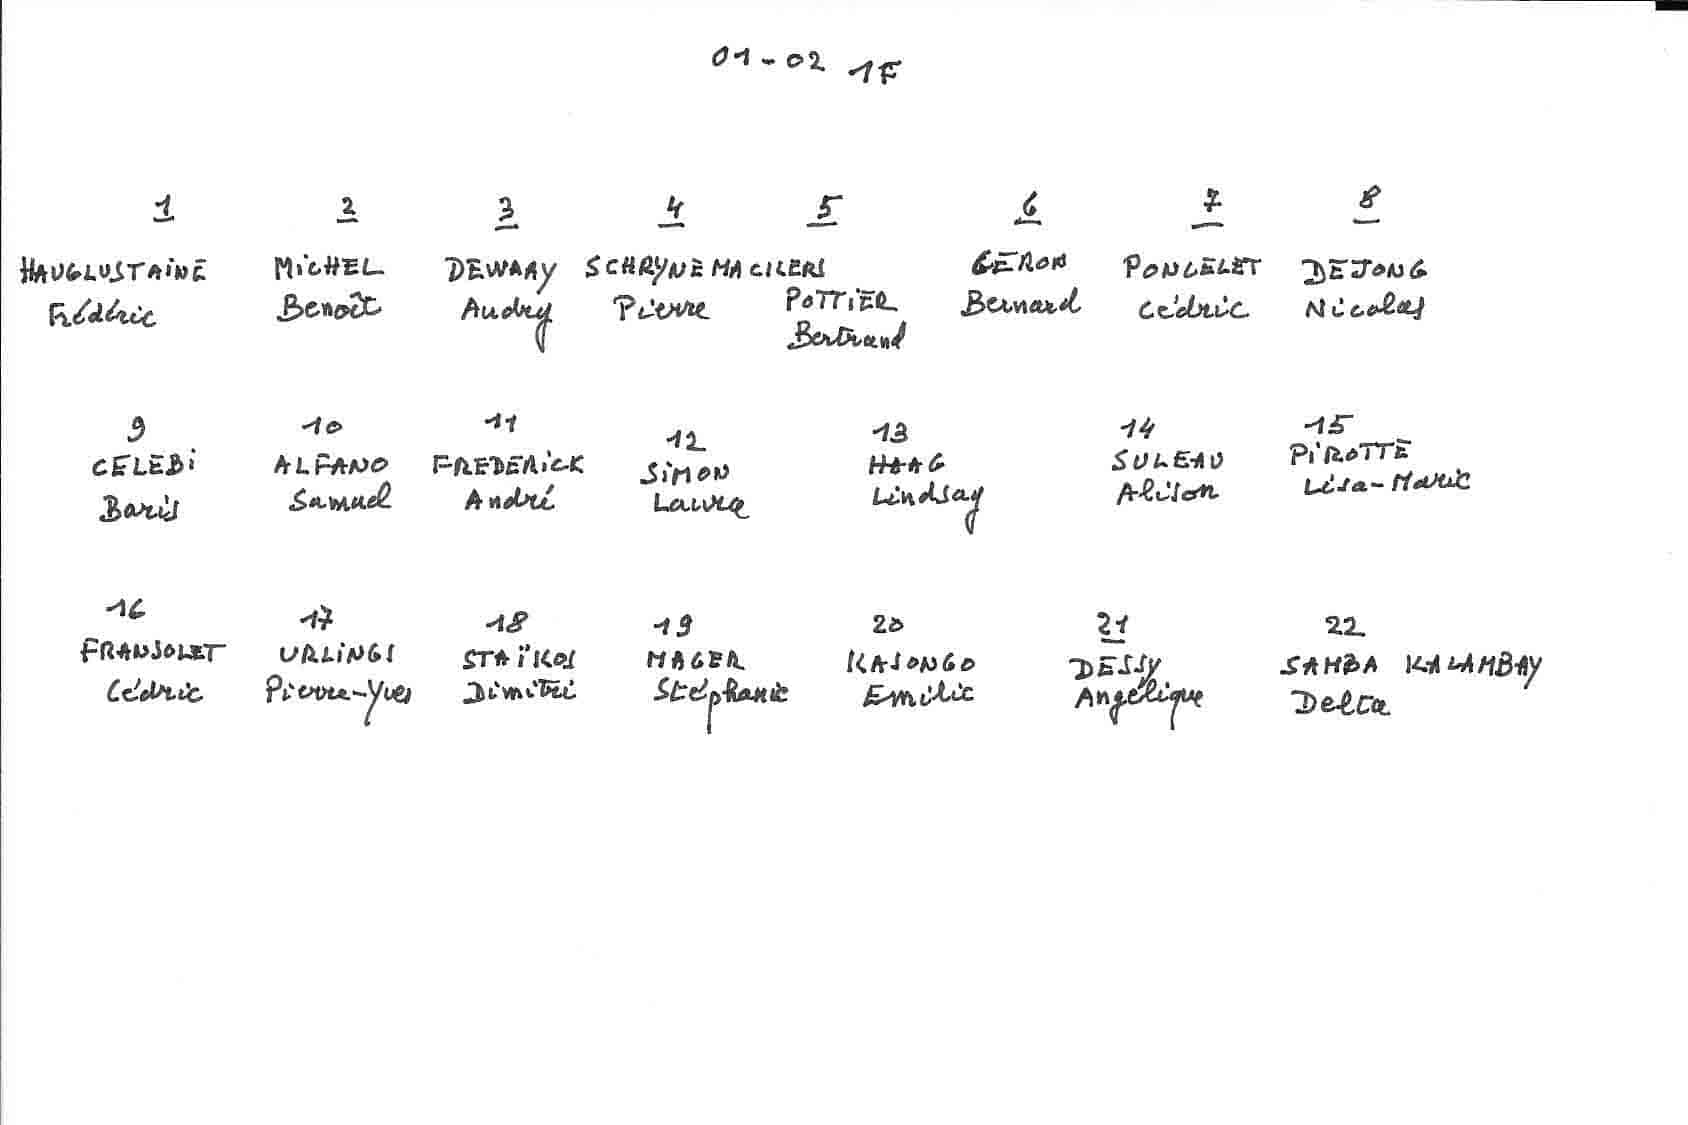 01-02 1F
1 2 3 4 5 6 7 8
HAUGLUSTAINE MICHEL DEWAAY SCHRYNEMACKERS GERON PONCELET DEJONG
POTTIER
Frédéric Benoît Audry Pierre Bernard Cédric Nicolas
Bertrand
9 10 11 12 13 14 15
CELEBI ALFANO FREDERICK SIMON HAAG SULEAU PIROTTE
Baris Samuel André Laura Lindsay Alison Lisa-Marie
16 17 18 19 20 21 22
FRANSOLET URLINGS STAÏKOS MAGER KASONGO DESSY SAMBA KALAMBAY
Cédric Pierre-Yves Dimitri Stéphanie Emilie Angélique Delta